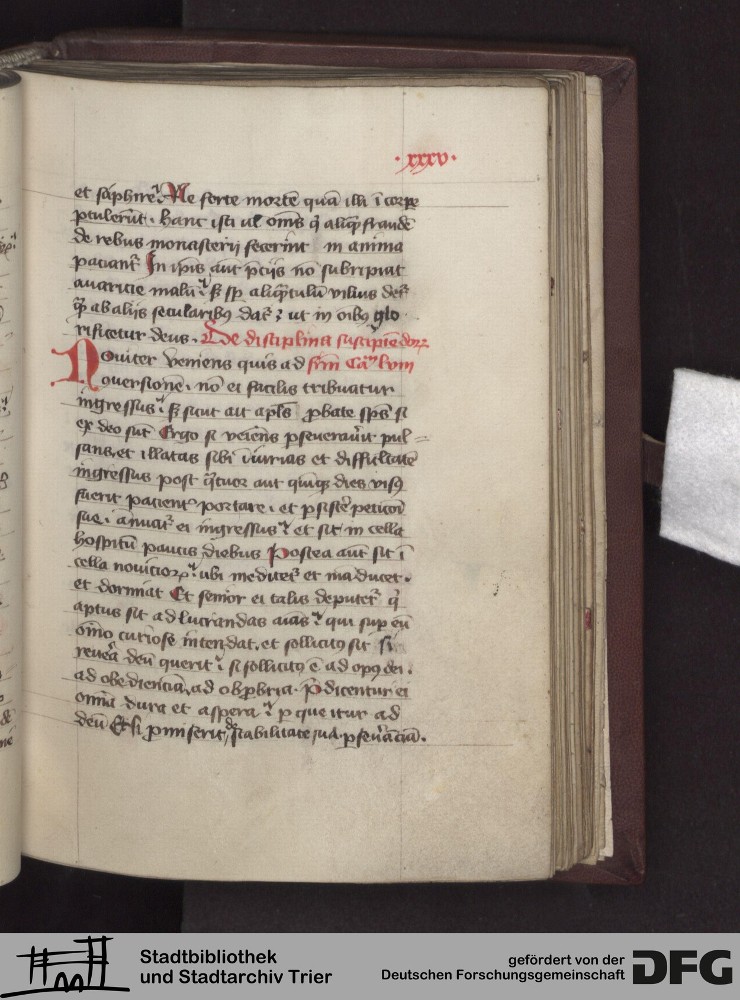 ·xxxv·
et saphire. Ne forte mortē quā illi ī corpe
ptulerūt. hanc isti ul om̄s q̄ aliq̄ fraudē
de rebus monasterij fecerint in anima
paciant᷑ In ip̄is aut̄ p̄ciis nō subripiat
auaricie malū ꝫ sꝫ sp̄ aliq̄tulū vilius det᷑
q̄ ab aliis secularibꝯ dat᷑ ꝫ ut in oībꝯ glo
rificetur deus. De disciplina suscipiēdoꝝ
Nouiter veniens quis ad fr̄m Ca᷑ lviii
ꝯuersionē. nō ei facilis tribuatur
ingressus sꝫ sicut ait apl̄s ꝓbate sp̄s si
ex deo sūt Ergo si veīens ꝑseuerau̾it pul
sans, et illatas sibi iīurias et difficultatē
ingressus post q̄tuor aut quinqꝫ dies visꝯ
fuerit pacient᷑ portare. et ꝑsistē peticōi
sue. annuat᷑ ei ingressus et sit in cella
hospitū paucis diebus Postea aut̄ sit ī
cella nouicioꝝ ubi meditet᷑ et māducet.
et dormiat Et senior ei talis deputet᷑ q̄
aptus sit ad lucrandas aīas qui sup eū
om̄o curiose intendat. et sollicitꝯ sit si
reuēa deū querit si sollicitꝯ ē ad opꝯ dei.
ad obedienciā, ad obꝓbria. P̄dicentur ei
om̄ia dura et aspera ꝑ que itur ad
deū Et si ꝓmiserit de stabilitate sua ꝑseu̾ācīa.
Stadtbibliothek
und Stadtarchiv Trier
gefördert von der
Deutschen Forschungsgemeinschaft
DFG